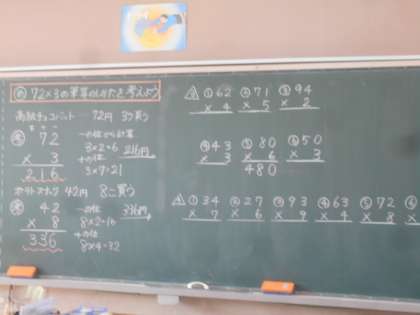 め 72×3の筆算のしかたを考えよう
高級チョコバット…72円 3つ買う
72
× 3
216
一の位から計算
3×2=6
十の位
3×7=21
216円
42円 8こ買う
42
× 8
336
一の位
8×2=16
十の位
8×4=32
336円
① 62
× 4
② 71
× 5
③ 94
× 2
④ 43
× 3
⑤ 80
× 6
480
⑥ 50
× 3
① 34
× 7
② 27
× 6
③ 93
× 9
④ 63
× 4
⑤ 72
× 8